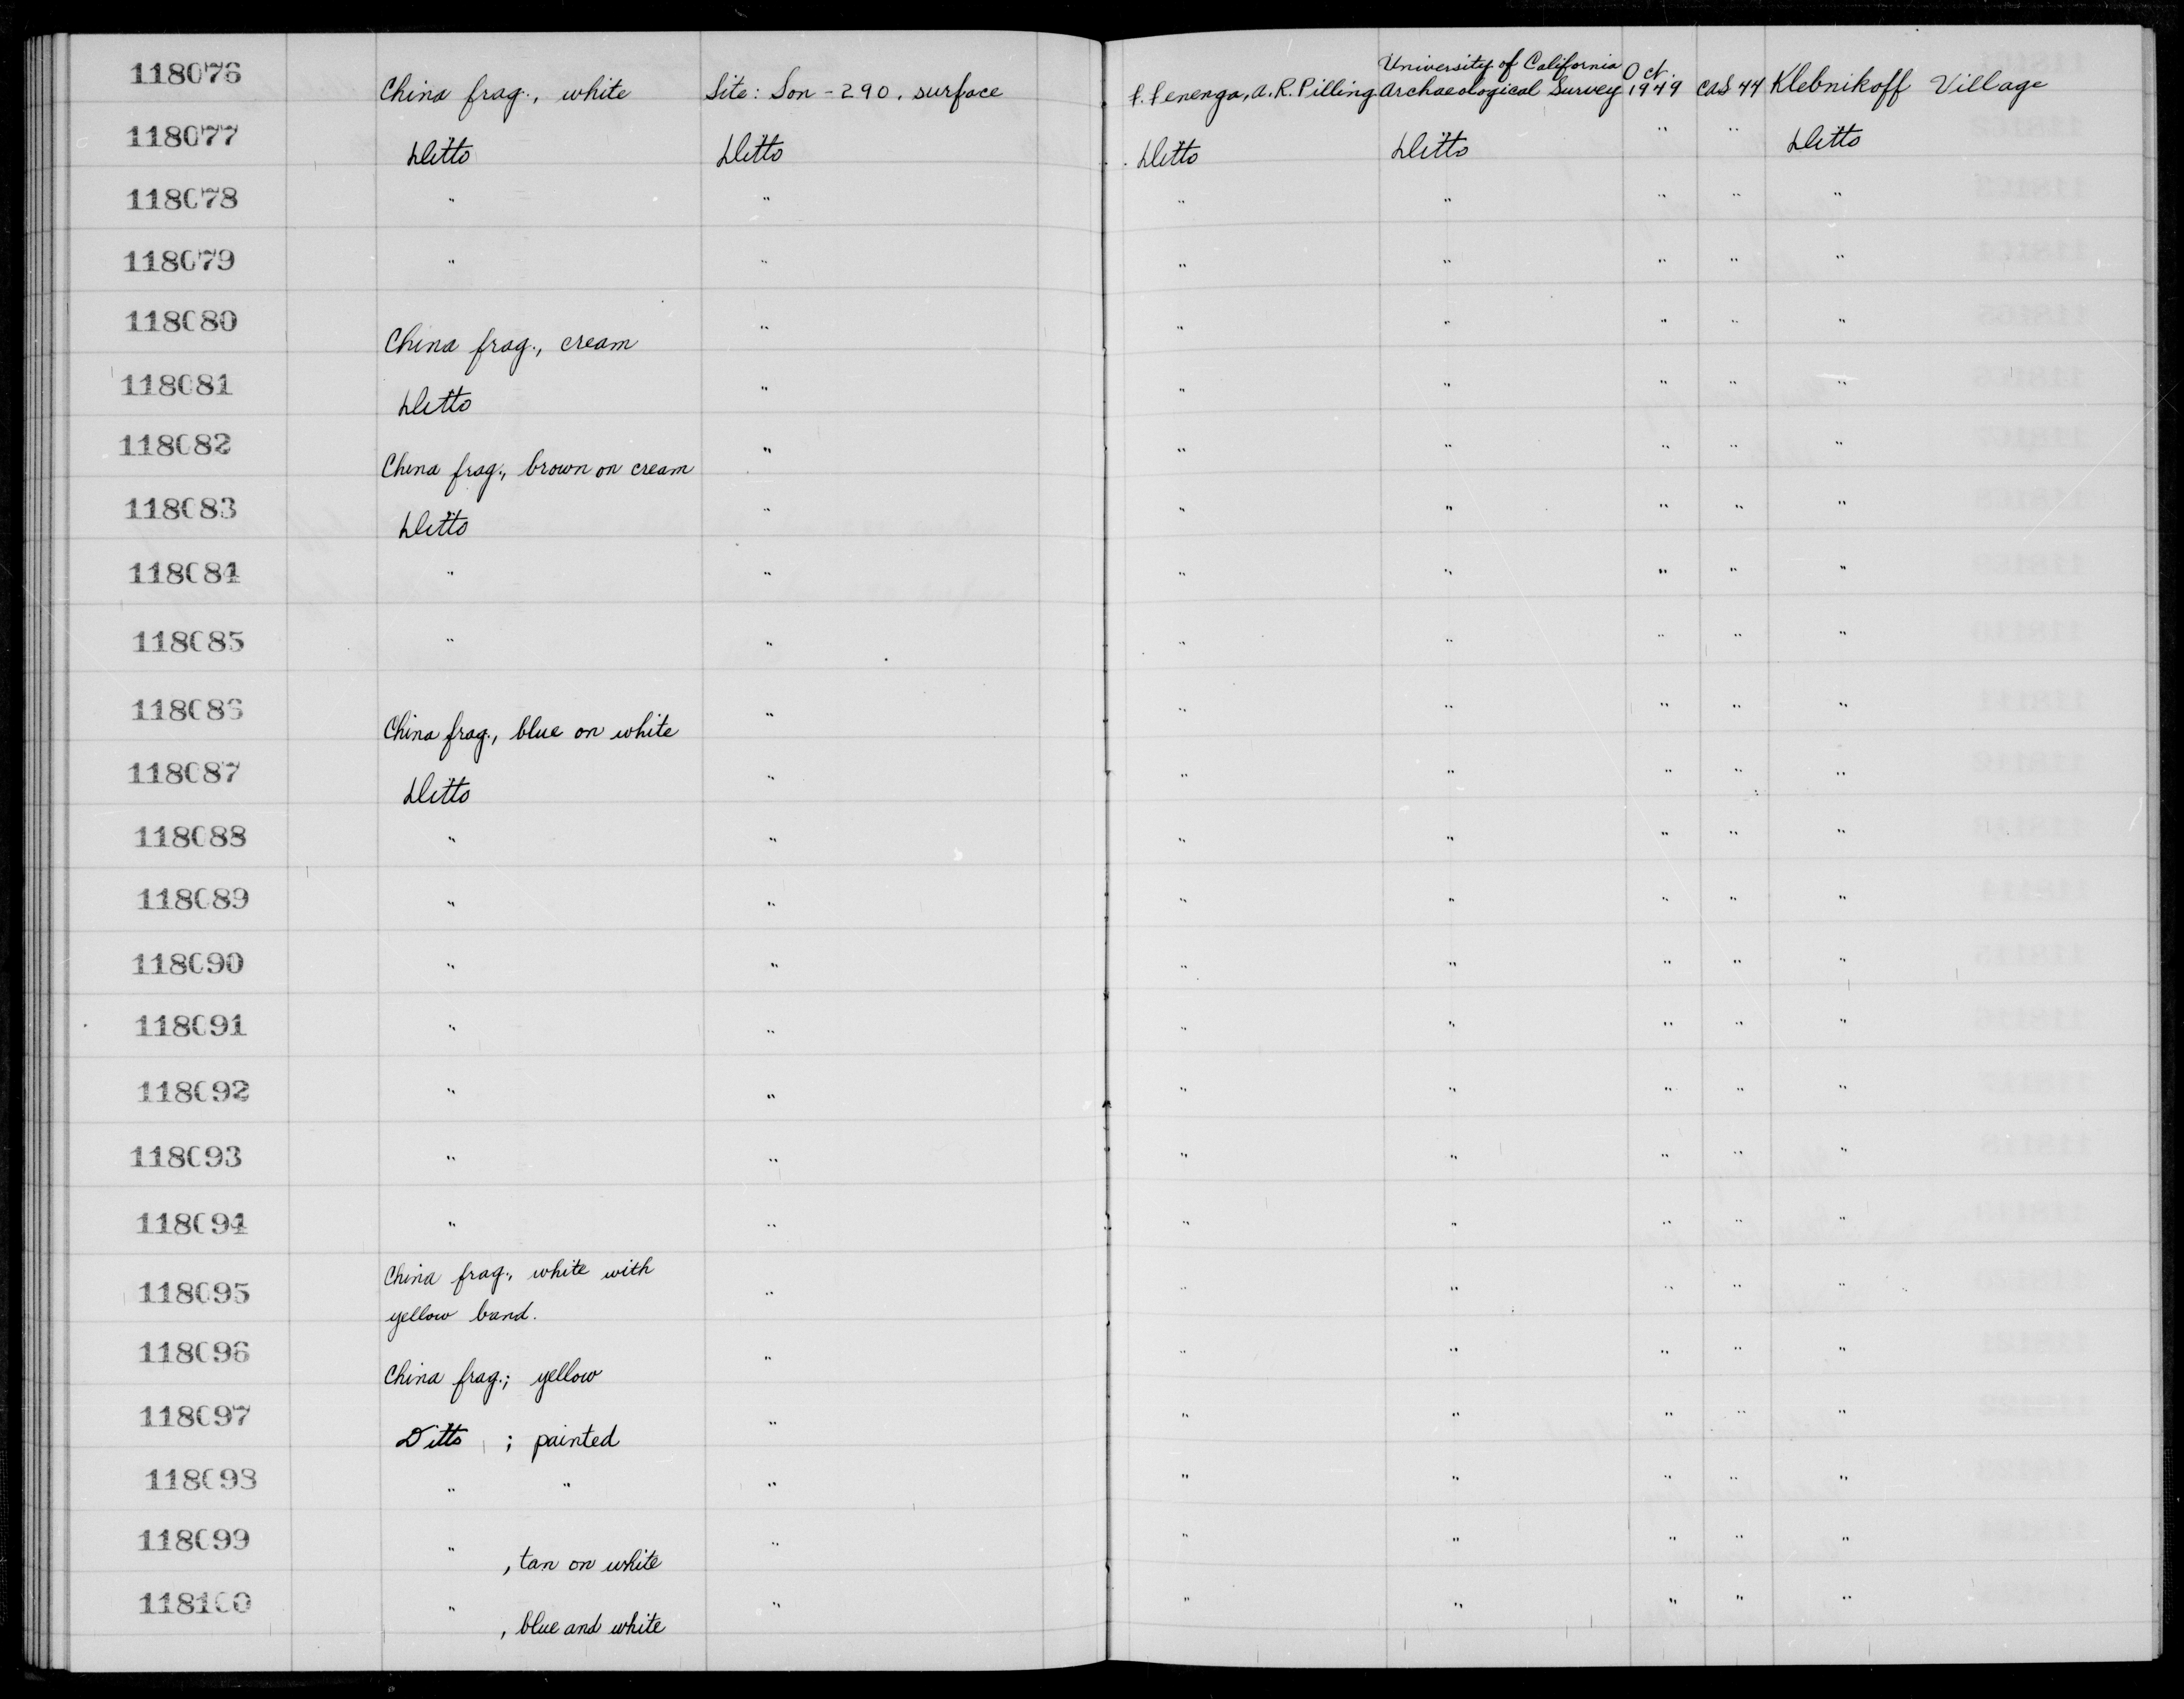 118076 China frag., white Site: Son-290, surface F. Fenenga, A.R. Pilling University of California Archaeological Survey Oct. 1949 CAS 44 Klebnikoff Village
118077 Ditto Ditto Ditto Ditto " " Ditto
118078 " " " " " " "
118079 " " " " " " "
118080 China frag., cream " " " " " "
118081 Ditto " " " " " "
118082 China frag., brown on cream " " " " " "
118083 Ditto " " " " " "
118084 " " " " " " "
118085 " " " " " " "
118086 China frag., blue on white " " " " " "
118087 Ditto " " " " " "
118088 " " " " " " "
118089 " " " " " " "
118090 " " " " " " "
118091 " " " " " " "
118092 " " " " " " "
118093 " " " " " " "
118094 " " " " " " "
118095 China frag., white with
yellow band. " " " " " "
118096 China frag.; yellow " " " " " "
118097 Ditto ; painted " " " " " "
118098 " " " " " " " "
118099 " , tan on white " " " " " "
118100 " , blue and white " " " " " "